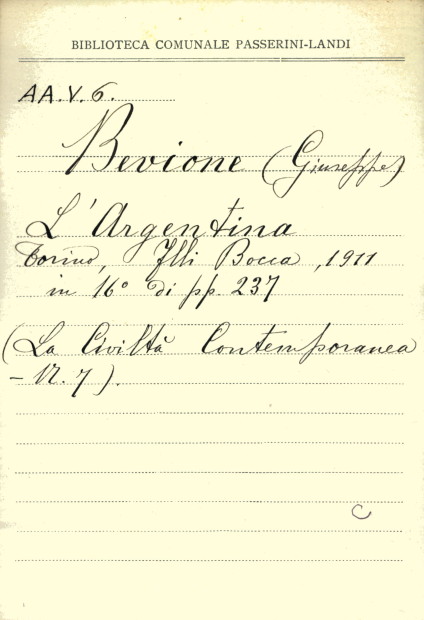 BIBLIOTECA COMUNALE PASSERINI-LANDI
AA.V.6.
Bevione (Giuseppe)
L'Argentina
Torino, Flli Bocca, 1911
in 16° di pp. 237
(La Civiltà Contemporanea
- N. 7).
C